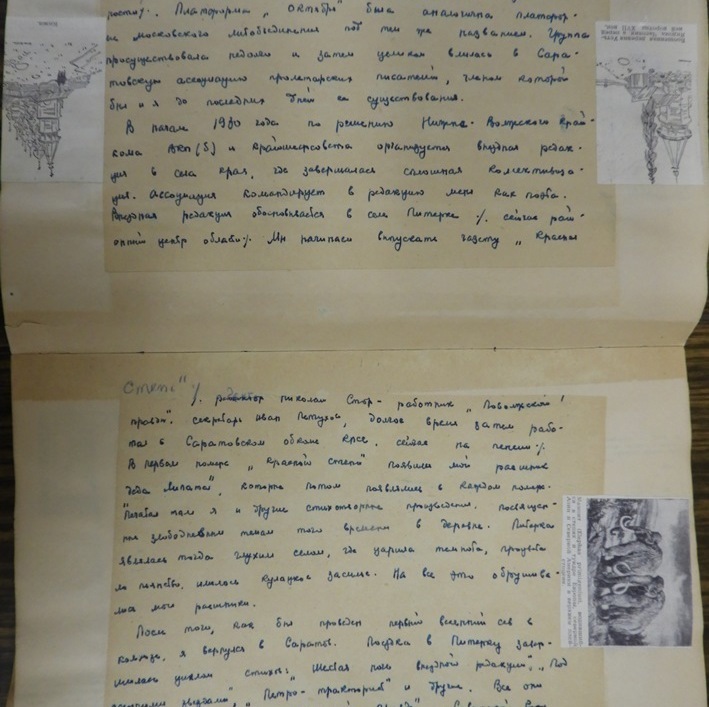 ность %. Платформа „Октябрь" была аналогична платфор-
ме московского литобъединения под тем же названием. Группа
просуществовала недолго и затем целиком влилась в Сара-
товскую ассоциацию пролетарских писателей, членом которой
был и я до последних дней её существования.
В начале 1930 года по решению Нижне-Волжского край-
кома ВКП(б) и крайисполкома организуется выездная редак-
ция в села края, где завершалась сплошная коллективиза-
ция. Ассоциация командирует в редакцию меня как поэта.
Выездная редакция обосновывается в селе Питерке %. сейчас рай-
онный центр области %. Мы начинаем выпускать газету „Красная
степь" %.
%. редактор Николай Стор- работник „Поволжской
правды". секретарь Иван Петухов, долгое время затем рабо-
тал в Саратовском обкоме КПСС, сейчас на пенсии %.
В первом номере „Красной степи" появился мой раешник
деда Липата", которые потом появлялись в каждом номере.
Печатал там я и другие стихотворные произведения, посвящен-
ные злободневным темам того времени в деревне. Питерка
являлась тогда глухим селом, где царила темнота, процвета
ло пьянство, имелось кулацкое засилье. На все это обрушива-
лись мои раешники.
После того, как был проведен первый весенний сев в
колхозе, я вернулся в Саратов. Поездка в Питерку завер-
шилась циклом стихов: „Шестая полоса выездной редакции", „Под
звездами", „Петро-тракторист" и другие. Все они